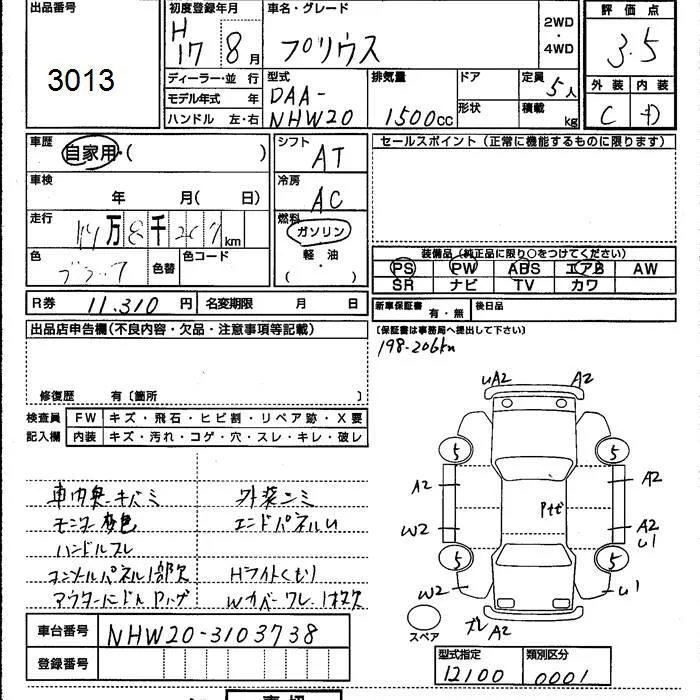 出品番号
3013
初度登録年月
H17 8月
車名・グレード
プリウス
2WD・4WD
評価点
3.5
外装 内装
C
ディーラー・並行
モデル年式 年
ハンドル 左・右
型式
DAA-
NHW20
排気量
1500cc
ドア
形状
定員 5人
積載 kg
車歴
自家用・( )
車検
年 月( 日)
走行
万8千207km
色
ブラック
色替
色コード
シフト
AT
冷房
AC
燃料
ガソリン
軽・油
( ・ )
セールスポイント (正常に機能するものに限ります)
装備品 (純正品に限り○をつけてください)
PS PW ABS エアB AW
SR ナビ TV カワ
新車保証書 有・無 後日品
(保証書は事務局へ提出して下さい)
198-206km
R券 11,310円 名変期限 月 日
出品店申告欄 (不良内容・欠品・注意事項等記載)
修復歴 有〔箇所 〕
検査員記入欄
FW キズ・飛石・ヒビ割・リペア跡・X要
内装 キズ・汚れ・コゲ・穴・スレ・キレ・破レ
車内臭・キバミ 外装シミ
モニター変色 エンドパネルU
ハンドルスレ
コンソールパネル1部欠 Hライトくもり
Wカバーワレ、1枚欠
車台番号 NHW20-3103738
登録番号
UA2 A2
5 5
A2 A2
Pキズ
W2 A2
U1
5 5
W2 U1
ズレ A2
スペア
型式指定 類別区分
12100 0001